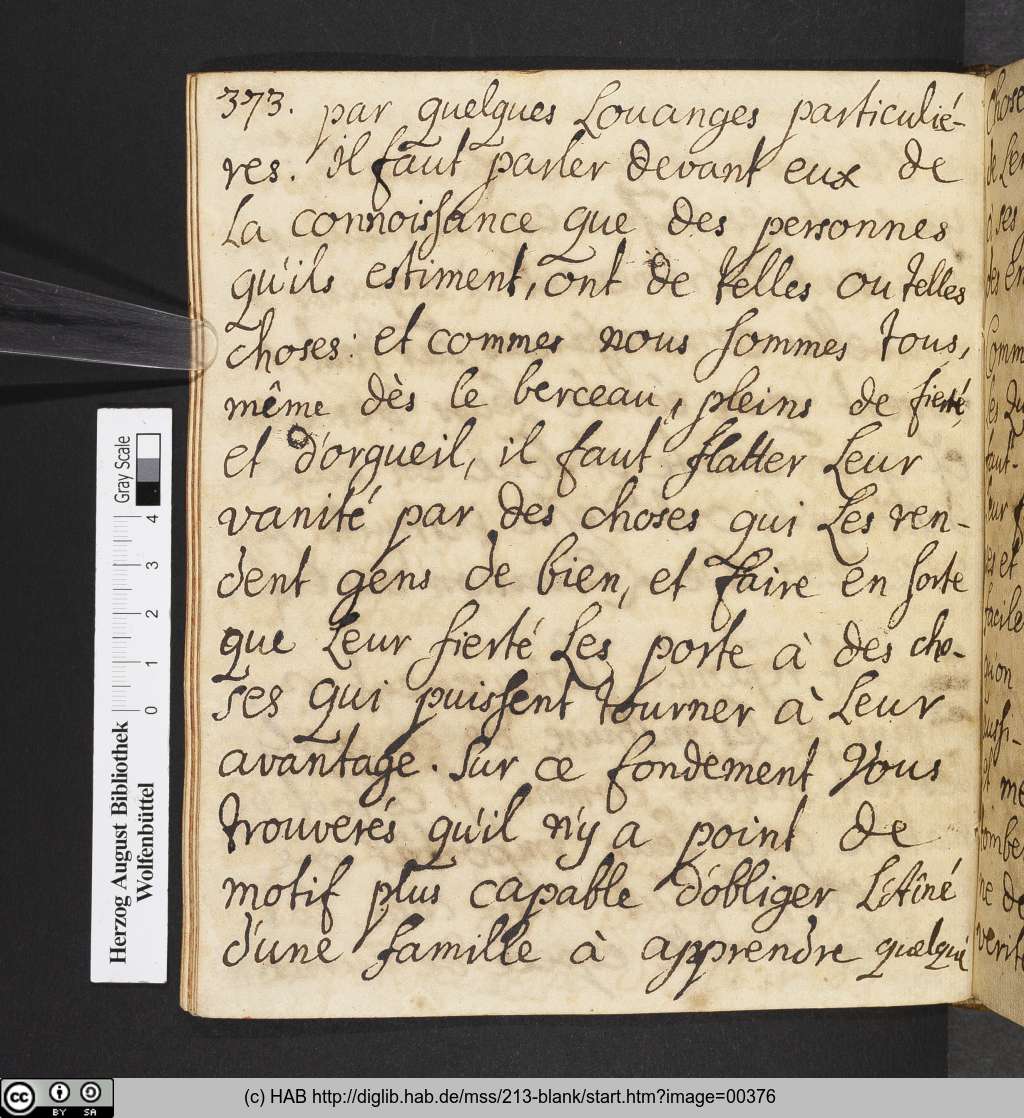 373. par quelques Louanges particulié-
res. il faut parler devant eux de
La connoissance que des personnes
qu'ils estiment, ont de telles ou telles
choses: et commes nous sommes tous,
même dès le berceau, pleins de fierté,
et d'orgueil, il faut flatter Leur
vanité par des choses qui Les ren-
dent gens de bien, et faire en sorte
que Leur fierté Les porte à des cho-
ses qui puissent tourner à Leur
avantage. Sur ce fondement Vous
trouverés qu'il n'y a point de
motif plus capable d'obliger L'Aîné
d'une famille à apprendre quelque
Herzog August Bibliothek
Wolfenbüttel
Gray Scale
0 1 2 3 4
cc BY SA
(c) HAB http://diglib.hab.de/mss/213-blank/start.htm?image=00376